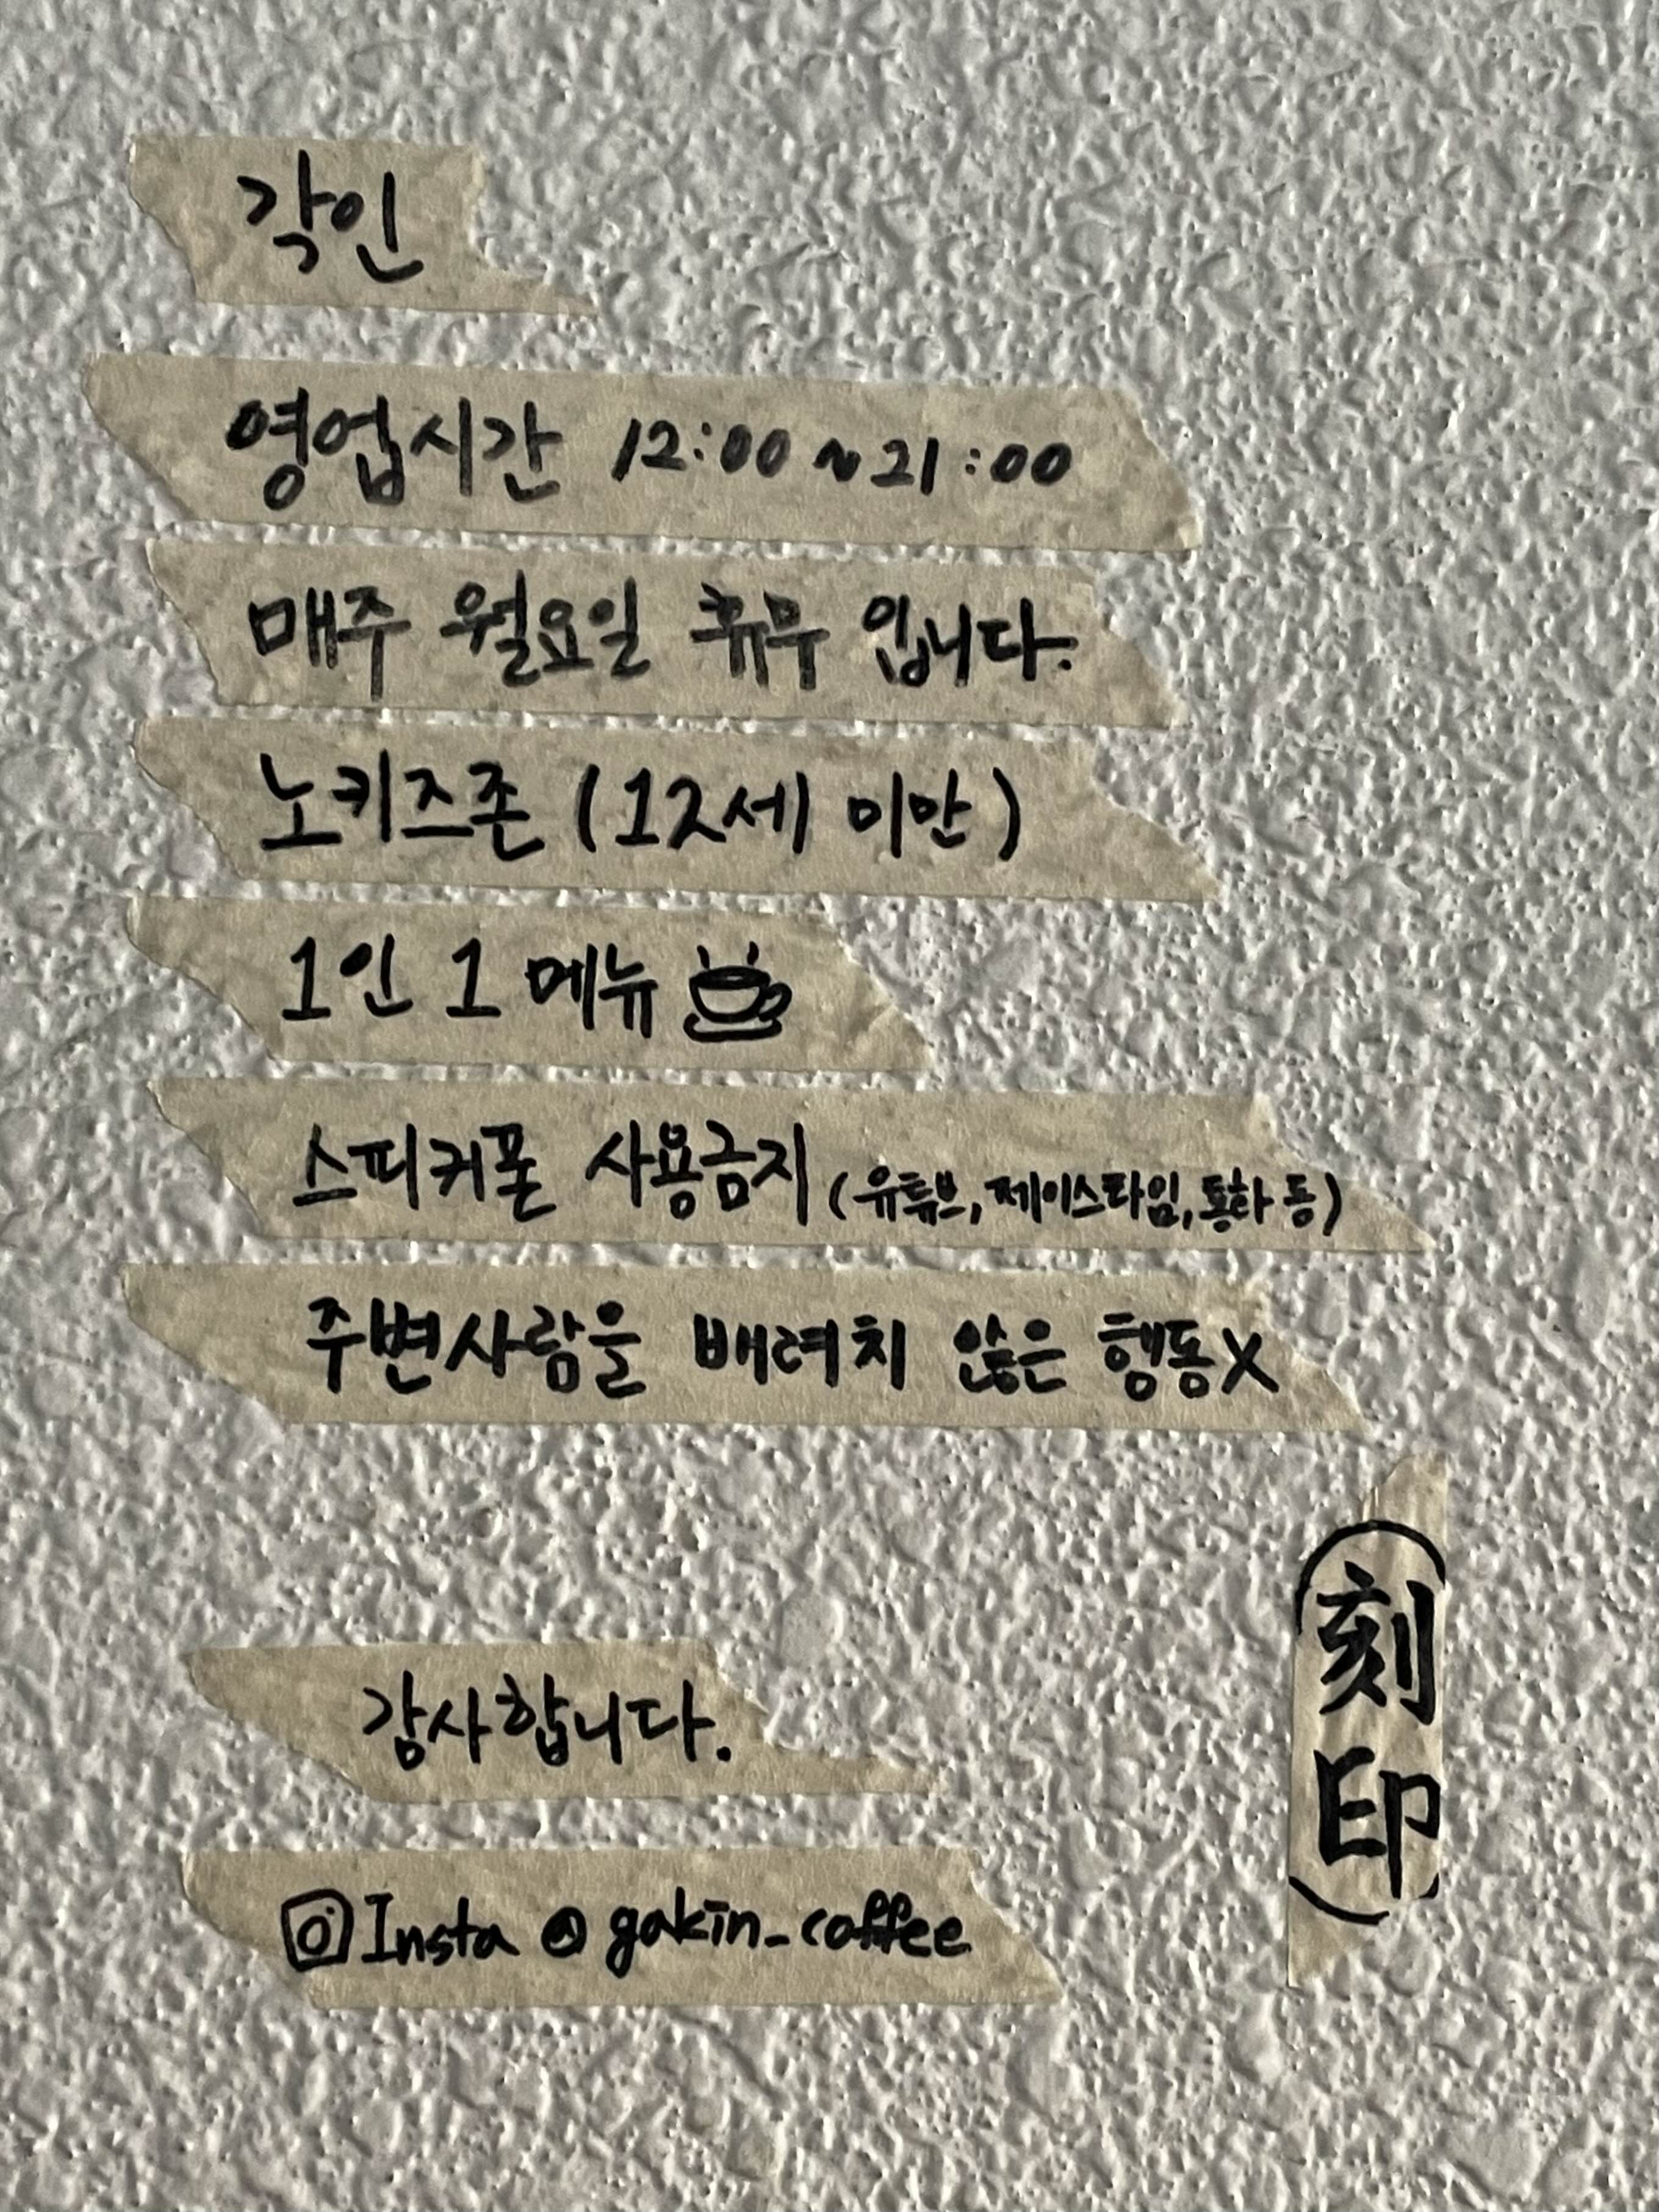 각인
영업시간 12:00 ~ 21:00
매주 월요일 휴무 입니다.
노키즈존 (12세 미만)
1인 1 메뉴
스피커폰 사용금지 (유튜브, 페이스타임, 통화 등)
주변사람을 배려치 않은 행동X
감사합니다.
Insta @ gakin_coffee
刻印